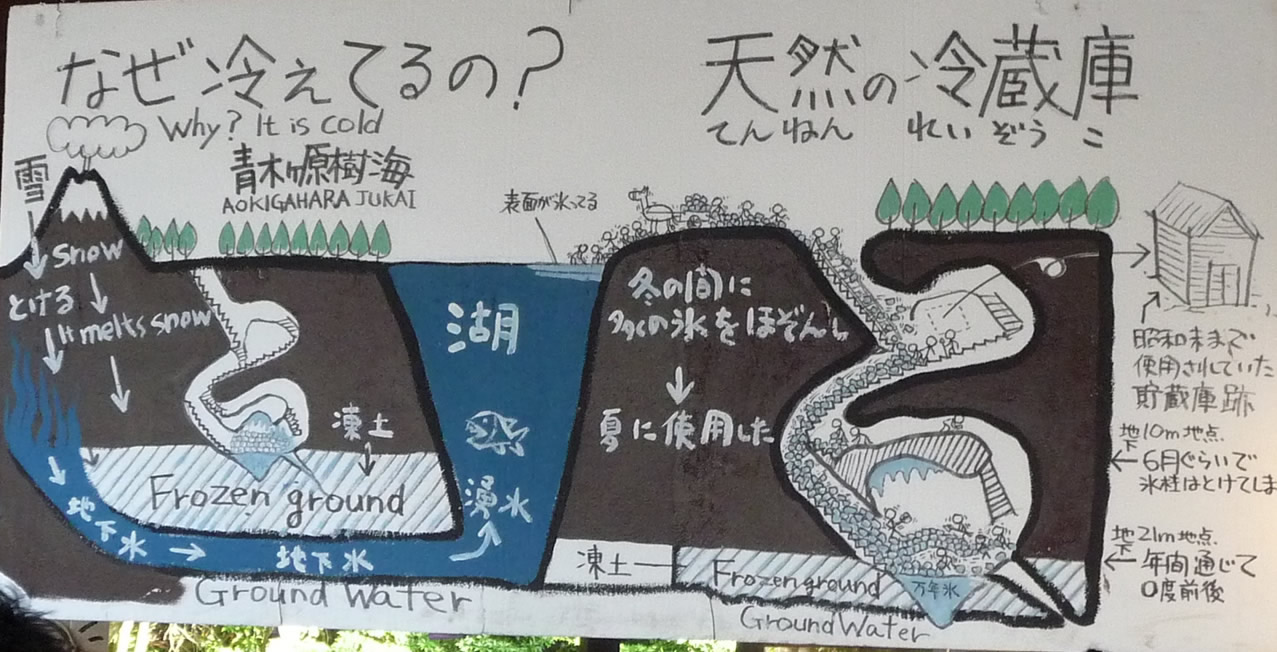 なぜ冷えてるの?
Why? It is cold
青木ヶ原樹海
AOKIGAHARA JUKAI
雪
snow
とける
It melts snow
凍土
Frozen ground
地下水
地下水
Ground Water
湖
湧水
表面が氷ってる
天然の冷蔵庫
てんねん れいぞうこ
冬の間に
多くの氷をほぞんし
夏に使用した
凍土
Frozen ground
万年氷
Ground Water
昭和末まで
使用されていた
貯蔵庫跡
地下10m地点
6月ぐらいで
氷柱はとけてしま
地下21m地点
年間通じて
0度前後